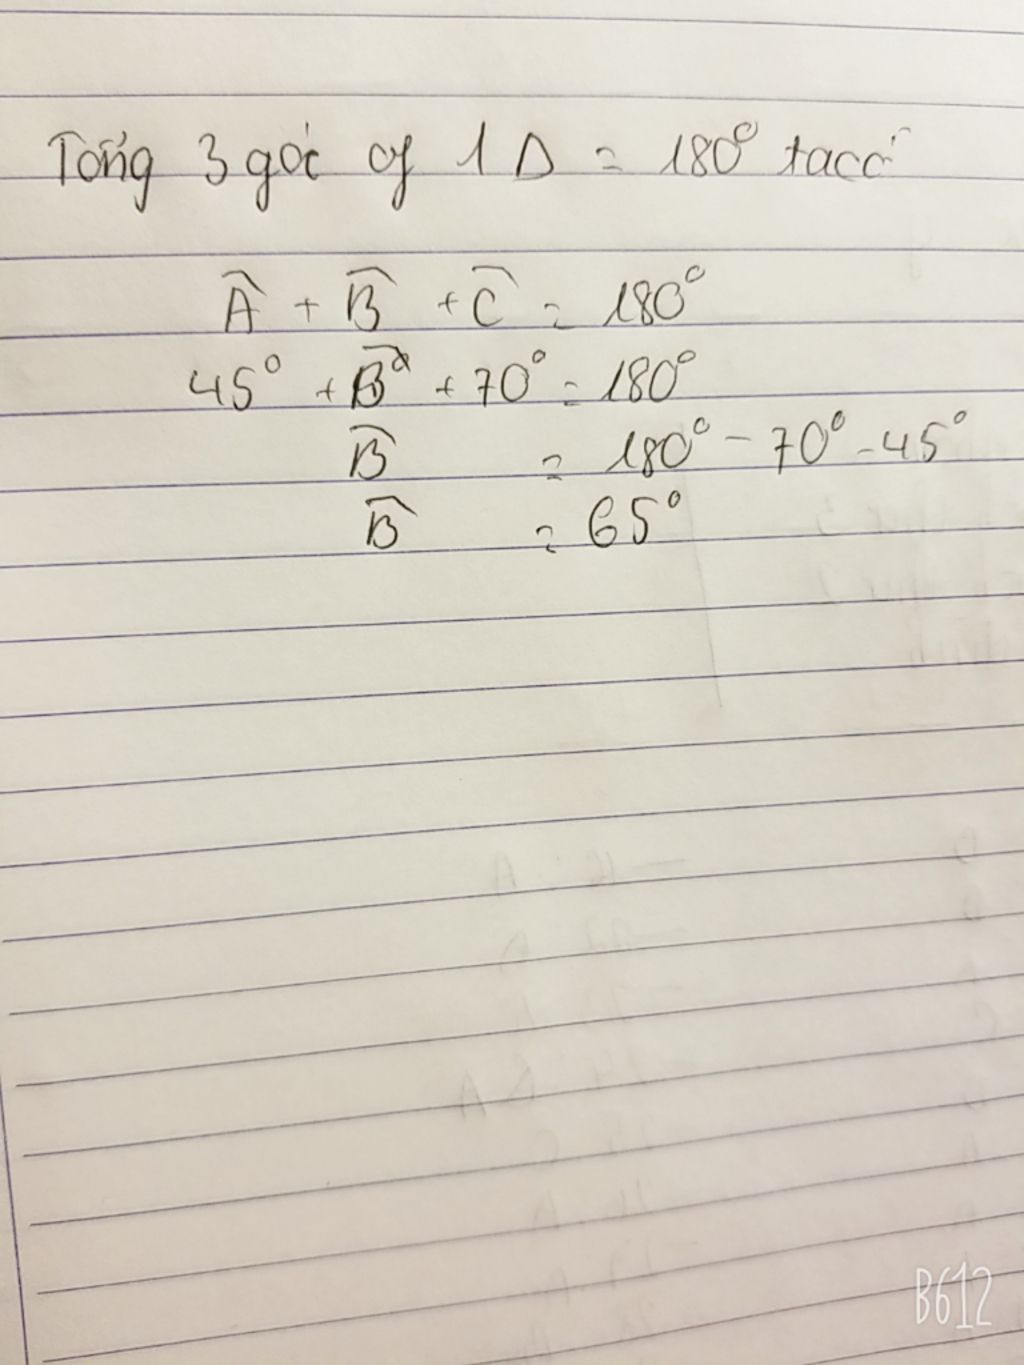 Tổng 3 góc of 1 Δ = 180° ta có
Â + B̂ + Ĉ = 180°
45° + B̂ + 70° = 180°
B̂ = 180° - 70° - 45°
B̂ = 65°
B612